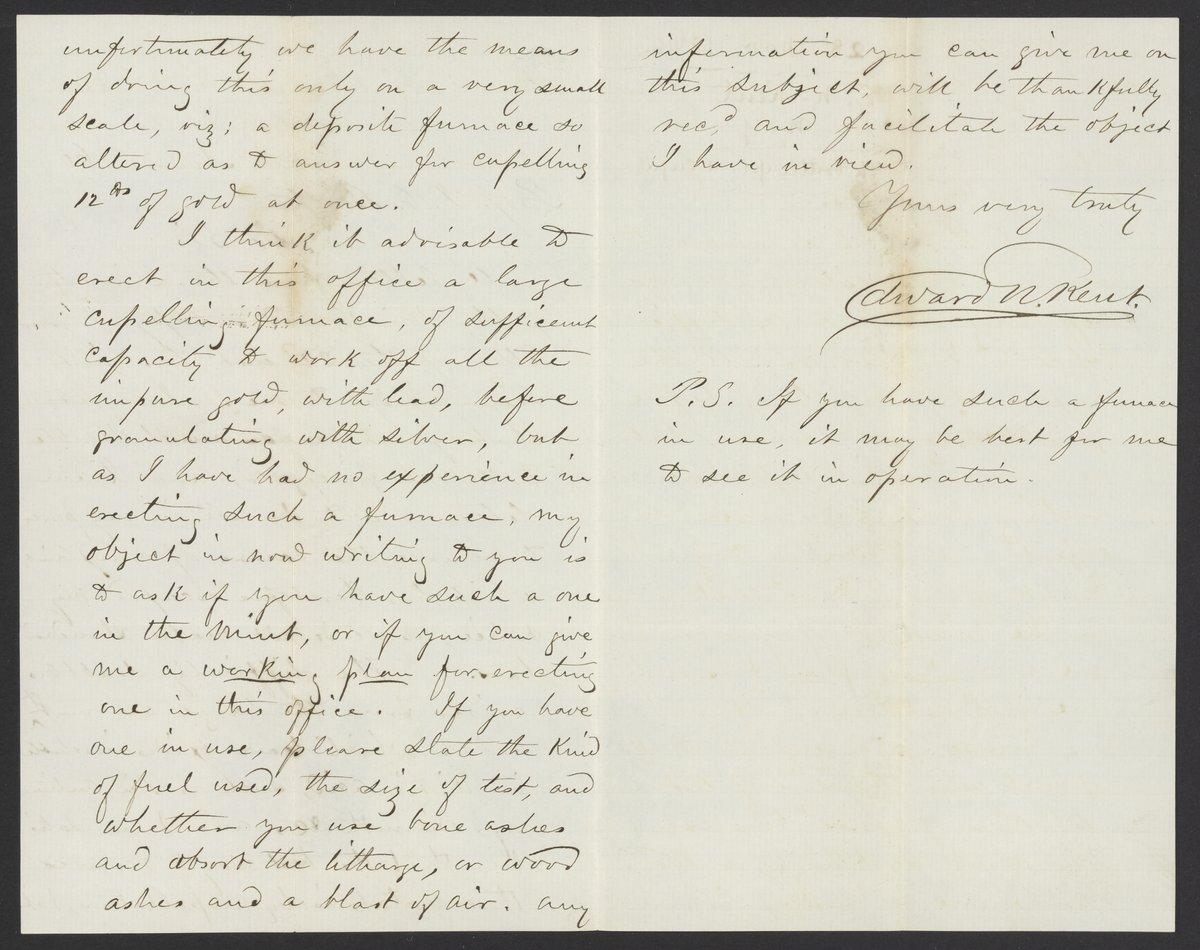 unfortunately we have the means
of doing this only on a very small
scale, viz; a deposite furnace so
altered as to answer for cupelling
12 lbs of gold at once.
I think it advisable to
erect in this office a large
cupelling furnace, of sufficent
capacity to work off all the
impure gold, with lead, before
granulating with silver, but
as I have had no experience in
erecting such a furnace, my
object in now writing to you is
to ask if you have such a one
in the Mint, or if you can give
me a working plan for erecting
one in this office. If you have
one in use, please state the kind
of fuel used, the size of test, and
whether you use bone ashes
and absort the litharge, or wood
ashes and a blast of air. any
information you can give me on
this subject, will be thankfully
recd, and facilitate the object
I have in view.
Yours very truly
Edward N. Kent.
P.S. If you have such a furnace
in use, it may be best for me
to see it in operation.